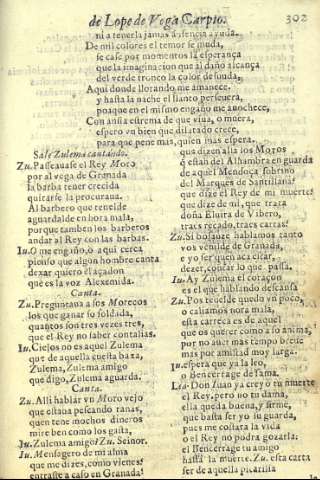 de Lope de Vega Carpio.
302
ni a tenerla jamas
De mil colores el temor se muda,
se case por momentos la esperança
que la imagina
del verde tronco la color desnuda,
Aqui donde llorando me amanece,
y hasta la noche el llanto perseuera,
porque en el mismo engaño me anochece,
Con ansia estrema de que viua, o muera,
espero vn bien que dilatado crece,
para que pene mas, quien mas espera.
Sale Zulema cantando.
Zu. Passeauase el Rey Moro
por al vega de Granada
la barba tener crecida
quitarse la procuraua.
Al barbero que
aguardalde en hora mala,
porque tamben los barberos
andar al Rey con las barbas.
Iu. O me engaño, o aqui cerca
pienso que algun hombre canta
dexar quiero el açadon
que es la voz Alexemida.
Canta.
Zu. Preguntaua a sos Morecos
los que ganar so soldada,
quantos son tres vezes tres,
que el Rey no saber contallas.
Iu. Cielos no es aquel Zulema
que de aquella cuesta baxa,
Zulema, Zulema amigo
que digo, Zulema aguarda.
Canta.
Zu. Alli hablar vn Moro vejo
que estaua pescando ranas,
quen tene mochos dineros
mire ben como los gasta,
Iu. Zulema amigo? Zu. Seinor.
Iu. Mensagero de mi alma
que me dizes, como vienes?
entraste a caso en Granada?
que dizen alla los Moros
q̃ estan del Alhambra en guarda
de aquel Mendoça sobrino
del Marques de Santillana?
que dize el Rey de mi muerte
que dize de mi, que trata
doña Eluira de Vibero,
traes recado, traes cartas?
Zu. Si bosance hablamos tanto
yo s venilde de Granada,
e yo ser quen aca citar,
dezer, contar lo que passa.
Iu. Ay Zulema el coraçon
es el que hablando descansa
Zu. Pos teuelde quedo vn poco,
o caliamos nora mala,
esta carreca es de aquel
que os querer como a so anima,
por no auer mas tempo breue
mas por amistad moy larga.
Iu. espera que ya la leo,
o Bencerrage de fama.
Lea. Don Iuan ya creyo tu muerte
el Rey, pero no tu dama,
ella queda buena, y firme,
que basta ser yo su guarda,
pues me costara la vida
o el Rey no podra gozarla:
el Bencerrage tu amigo
hasta la muerte. Zu. esta carta
ser de aquella picarilla